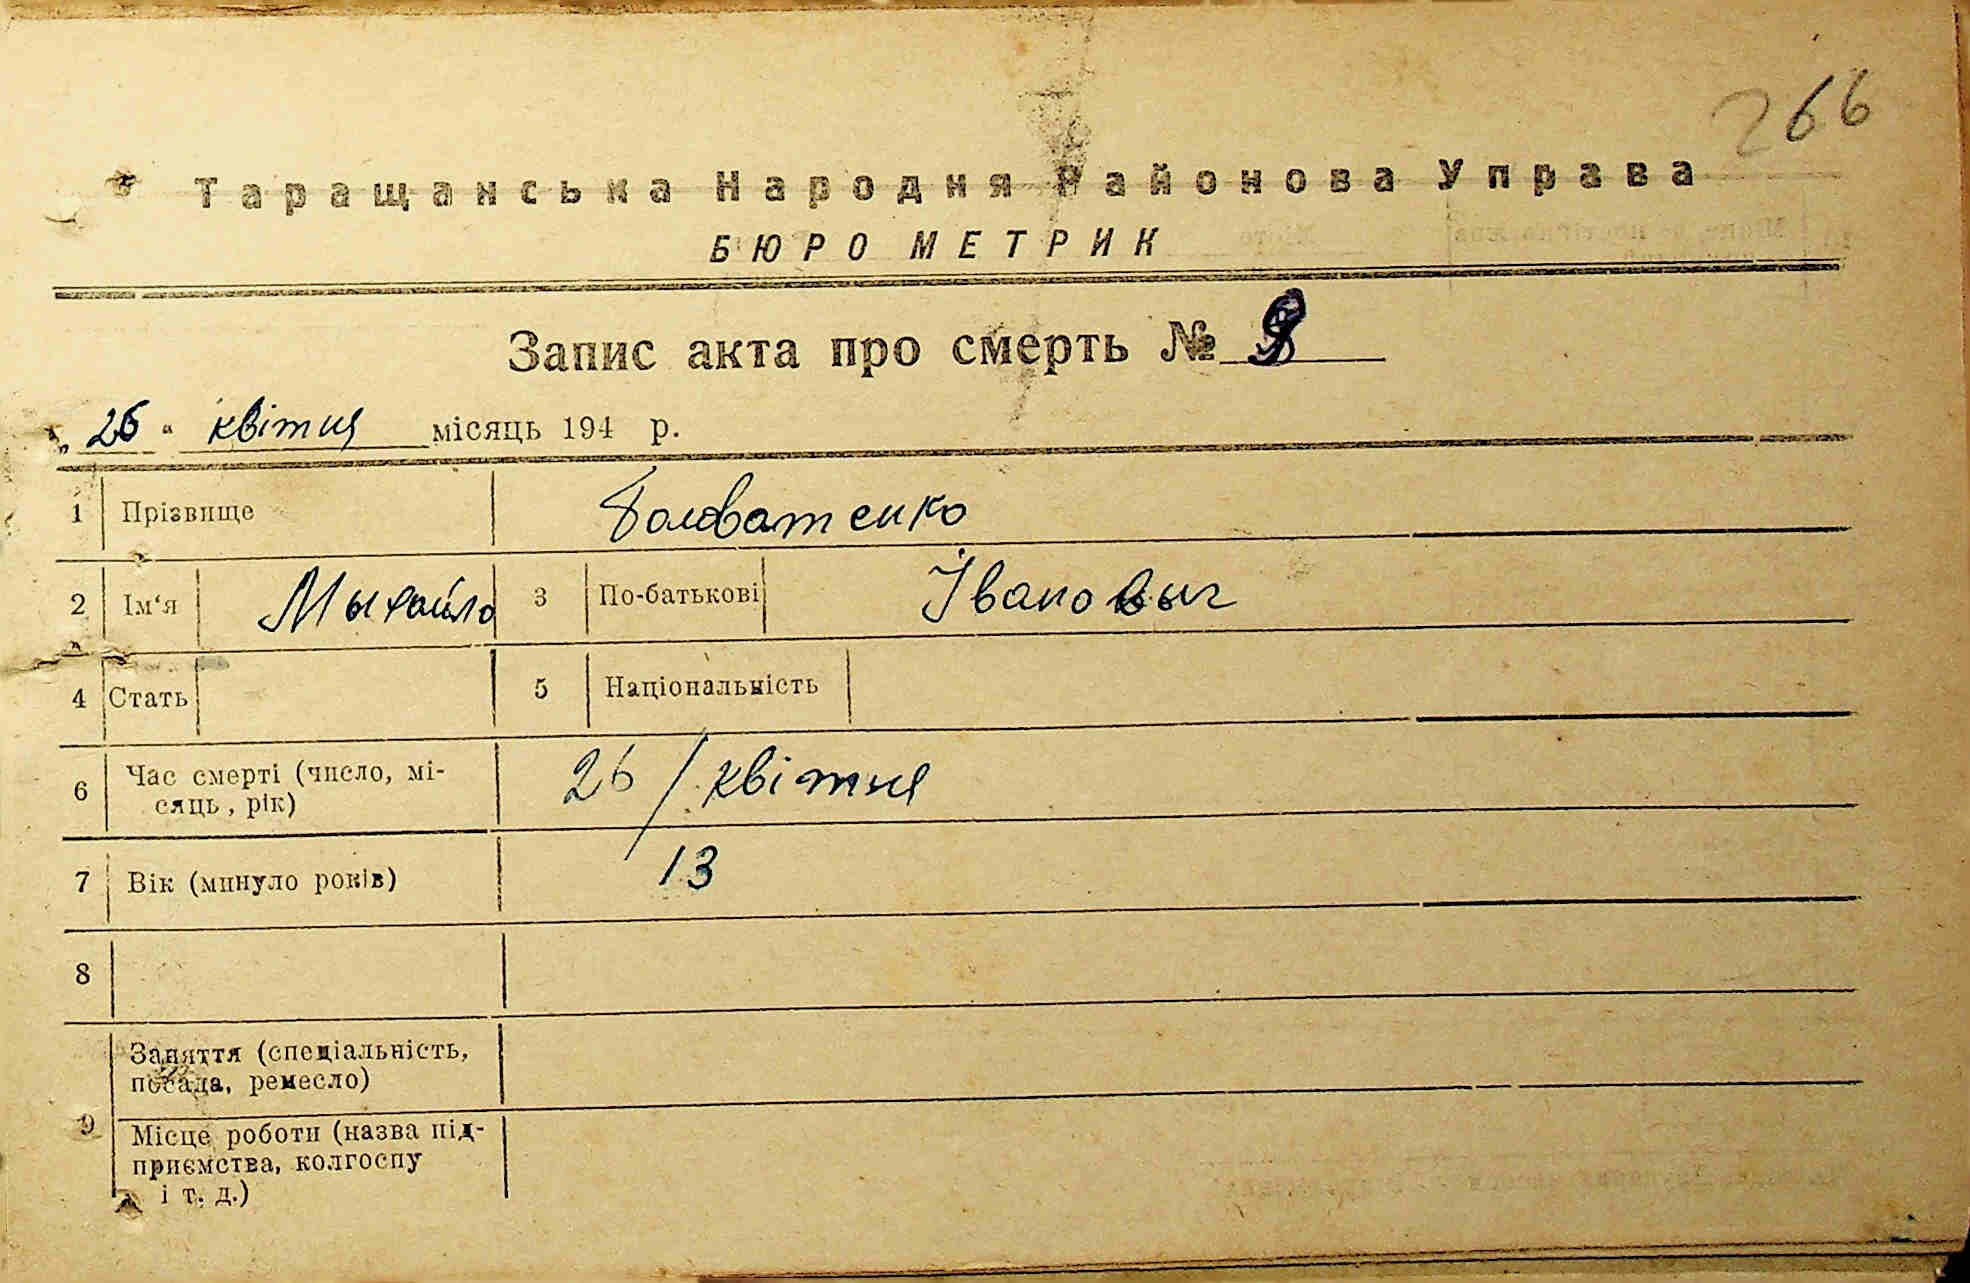 266
Таращанська Народня Районова Управа
БЮРО МЕТРИК
Запис акта про смерть №
„ 26 “ квітня місяць 194 р.
1 Прізвище Головатенко
2 Ім‘я Мыхайло 3 По-батькові Івановыч
4 Стать 5 Національність
6 Час смерті (число, мі-
сяць, рік) 26 / квітня
7 Вік (минуло років) 13
8
Заняття (спеціальність,
посада, ремесло)
9
Місце роботи (назва під-
приємства, колгоспу
і т. д.)